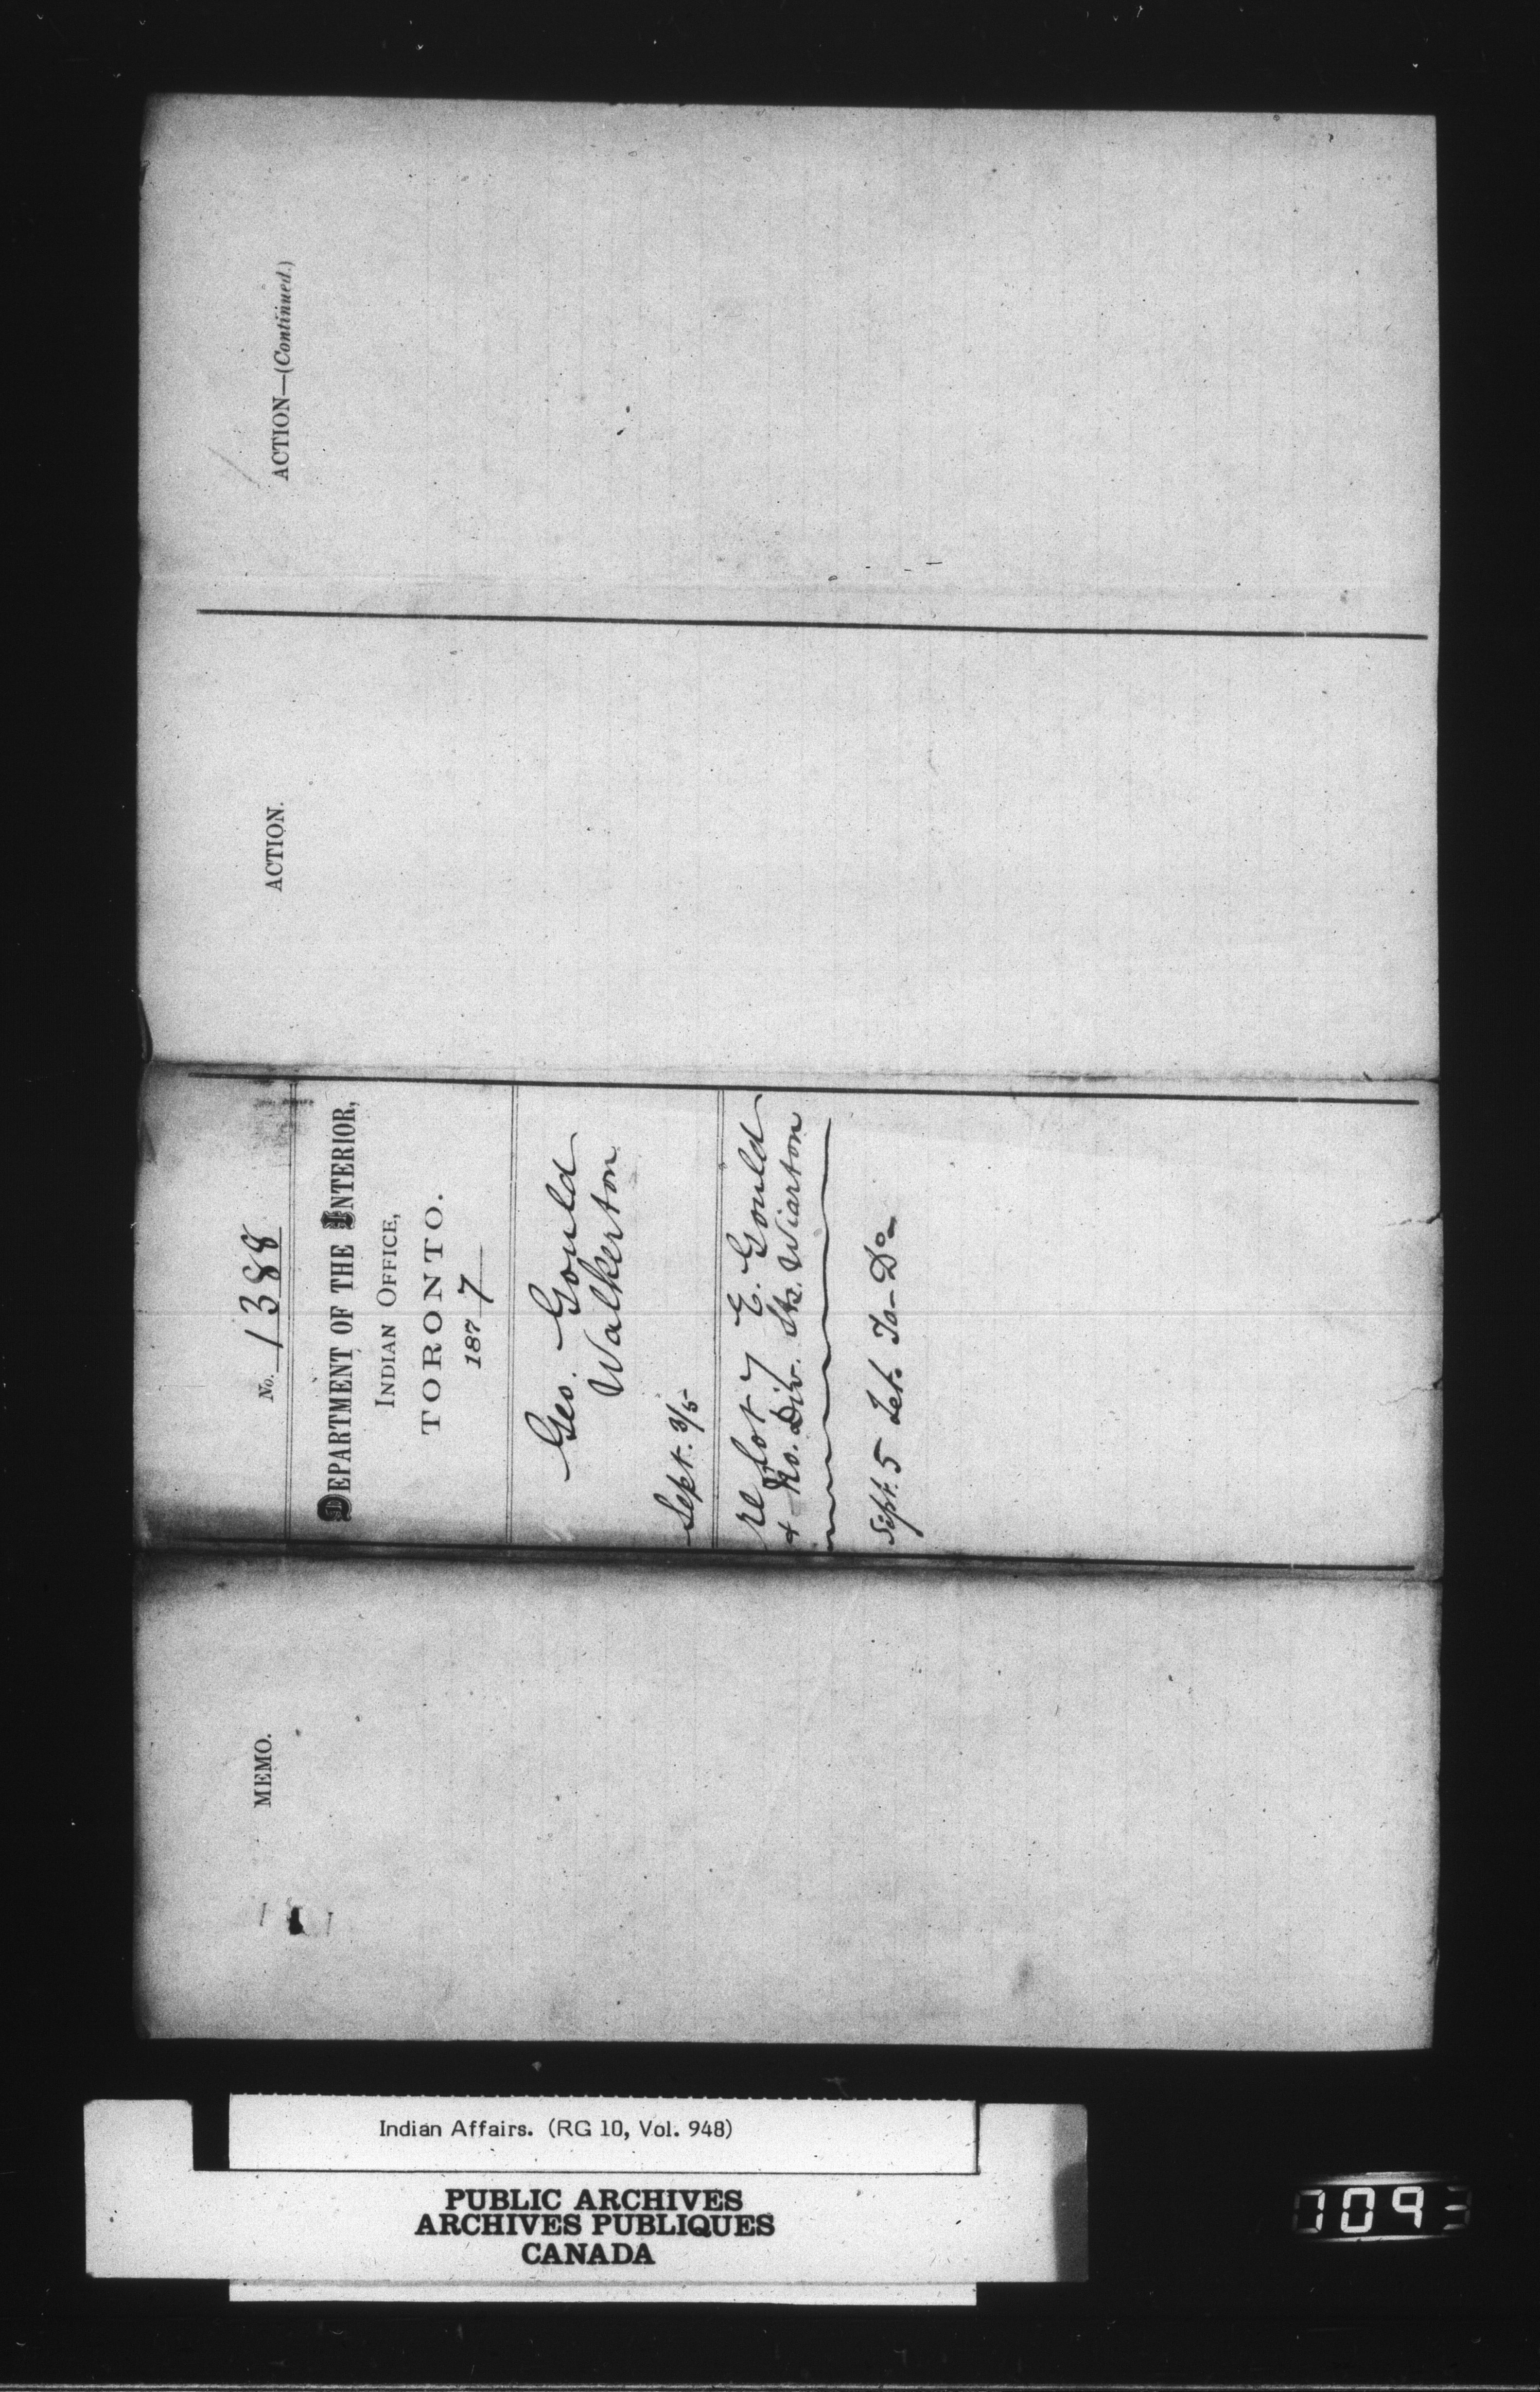 MEMO.
No. 1388
DEPARTMENT OF THE INTERIOR,
INDIAN OFFICE,
TORONTO.
1877
Geo. Gould
Walkerton
Sept. 3/5
re lot 7 E. Gould
& No. Div. Str. Wiarton
Sept. 5 Let. To - Do -
ACTION.
ACTION—(Continued.)
Indian Affairs. (RG 10, Vol. 948)
PUBLIC ARCHIVES
ARCHIVES PUBLIQUES
CANADA